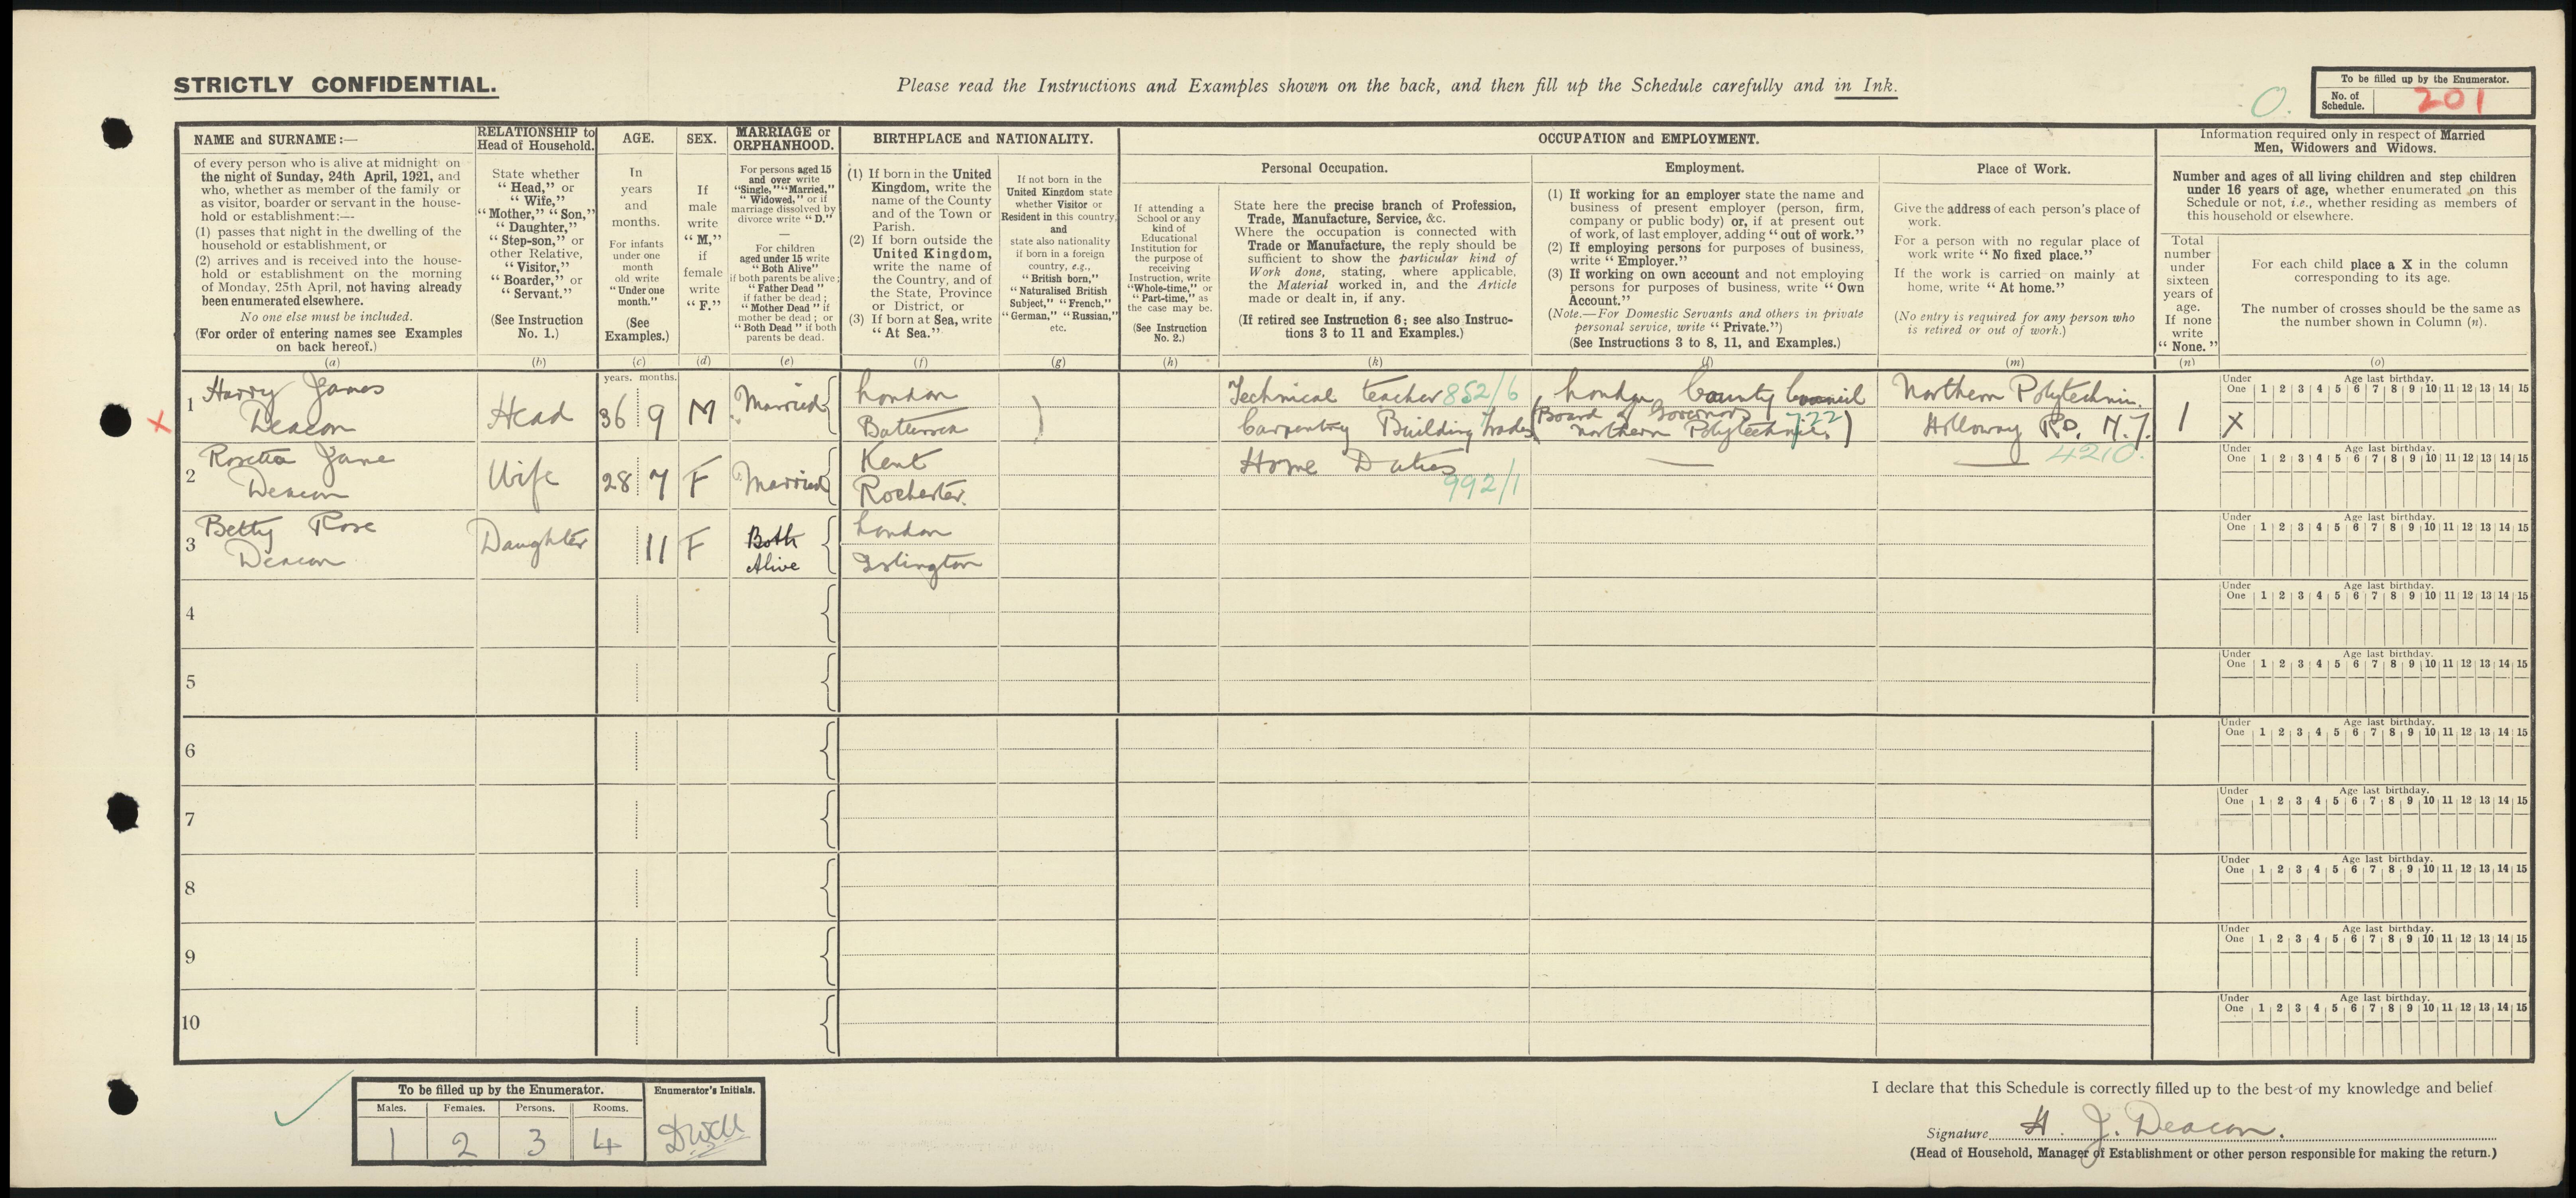 STRICTLY CONFIDENTIAL.
Please read the Instructions and Examples shown on the back, and then fill up the Schedule carefully and in Ink.
O.
To be filled up by the Enumerator.
No. of Schedule. 201
NAME and SURNAME:—
of every person who is alive at midnight on
the night of Sunday, 24th April, 1921, and
who, whether as member of the family or
as visitor, boarder or servant in the house-
hold or establishment:—
(1) passes that night in the dwelling of the
household or establishment, or
(2) arrives and is received into the house-
hold or establishment on the morning
of Monday, 25th April, not having already
been enumerated elsewhere.
No one else must be included.
(For order of entering names see Examples
on back hereof.)
(a)
RELATIONSHIP to
Head of Household.
State whether
"Head," or
"Wife,"
"Mother," "Son,"
"Daughter,"
"Step-son," or
other Relative,
"Visitor,"
"Boarder," or
"Servant."
(See Instruction
No. 1.)
(b)
AGE.
In
years
and
months.
For infants
under one
month
old write
"Under one
month."
(See
Examples.)
(c)
SEX.
If
male
write
"M,"
if
female
write
"F."
(d)
MARRIAGE or
ORPHANHOOD.
For persons aged 15
and over write
"Single," "Married,"
"Widowed," or if
marriage dissolved by
divorce write "D."
—
For children
aged under 15 write
"Both Alive"
if both parents be alive;
"Father Dead"
if father be dead;
"Mother Dead" if
mother be dead; or
"Both Dead" if both
parents be dead.
(e)
BIRTHPLACE and NATIONALITY.
(1) If born in the United
Kingdom, write the
name of the County
and of the Town or
Parish.
(2) If born outside the
United Kingdom,
write the name of
the Country, and of
the State, Province
or District, or
(3) If born at Sea, write
"At Sea."
(f)
If not born in the
United Kingdom state
whether Visitor or
Resident in this country,
and
state also nationality
if born in a foreign
country, e.g.,
"British born,"
"Naturalised British
Subject," "French,"
"German," "Russian,"
etc.
(g)
OCCUPATION and EMPLOYMENT.
If attending a
School or any
kind of
Educational
Institution for
the purpose of
receiving
Instruction, write
"Whole-time," or
"Part-time," as
the case may be.
(See Instruction
No. 2.)
(h)
Personal Occupation.
State here the precise branch of Profession,
Trade, Manufacture, Service, &c.
Where the occupation is connected with
Trade or Manufacture, the reply should be
sufficient to show the particular kind of
Work done, stating, where applicable,
the Material worked in, and the Article
made or dealt in, if any.
(If retired see Instruction 6; see also Instruc-
tions 3 to 11 and Examples.)
(k)
Employment.
(1) If working for an employer state the name and
business of present employer (person, firm,
company or public body) or, if at present out
of work, of last employer, adding "out of work."
(2) If employing persons for purposes of business,
write "Employer."
(3) If working on own account and not employing
persons for purposes of business, write "Own
Account."
(Note.—For Domestic Servants and others in private
personal service, write "Private.")
(See Instructions 3 to 8, 11, and Examples.)
(l)
Place of Work.
Give the address of each person's place of
work.
For a person with no regular place of
work write "No fixed place."
If the work is carried on mainly at
home, write "At home."
(No entry is required for any person who
is retired or out of work.)
(m)
Information required only in respect of Married
Men, Widowers and Widows.
Number and ages of all living children and step children
under 16 years of age, whether enumerated on this
Schedule or not, i.e., whether residing as members of
this household or elsewhere.
Total
number
under
sixteen
years of
age.
If none
write
"None."
(n)
For each child place a X in the column
corresponding to its age.
The number of crosses should be the same as
the number shown in Column (n).
(o)
years. months.
Under One Age last birthday. 1 2 3 4 5 6 7 8 9 10 11 12 13 14 15
X 1 Harry James Deacon Head 36 9 M Married London Battersea
Technical teacher 852/6
Carpentry Building Trades
London County Council
(Board of Governors 722
Northern Polytechnic.)
Northern Polytechnic.
Holloway Rd. N.7.
4210.
1 X
2 Rosetta Jane Deacon Wife 28 7 F Married Kent Rochester.
Home Duties — —
992/1
Under One Age last birthday. 1 2 3 4 5 6 7 8 9 10 11 12 13 14 15
3 Betty Rose Deacon Daughter 11 F Both Alive London Islington
Under One Age last birthday. 1 2 3 4 5 6 7 8 9 10 11 12 13 14 15
4
Under One Age last birthday. 1 2 3 4 5 6 7 8 9 10 11 12 13 14 15
5
Under One Age last birthday. 1 2 3 4 5 6 7 8 9 10 11 12 13 14 15
6
Under One Age last birthday. 1 2 3 4 5 6 7 8 9 10 11 12 13 14 15
7
Under One Age last birthday. 1 2 3 4 5 6 7 8 9 10 11 12 13 14 15
8
Under One Age last birthday. 1 2 3 4 5 6 7 8 9 10 11 12 13 14 15
9
Under One Age last birthday. 1 2 3 4 5 6 7 8 9 10 11 12 13 14 15
10
Under One Age last birthday. 1 2 3 4 5 6 7 8 9 10 11 12 13 14 15
To be filled up by the Enumerator.
Males. Females. Persons. Rooms.
1 2 3 4
Enumerator's Initials.
I declare that this Schedule is correctly filled up to the best of my knowledge and belief
Signature H. J. Deacon.
(Head of Household, Manager of Establishment or other person responsible for making the return.)